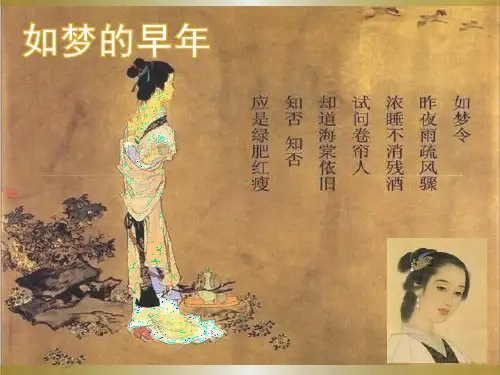 如梦的早年
如梦令
昨夜雨疏风骤
浓睡不消残酒
试问卷帘人
却道海棠依旧
知否 知否
应是绿肥红瘦